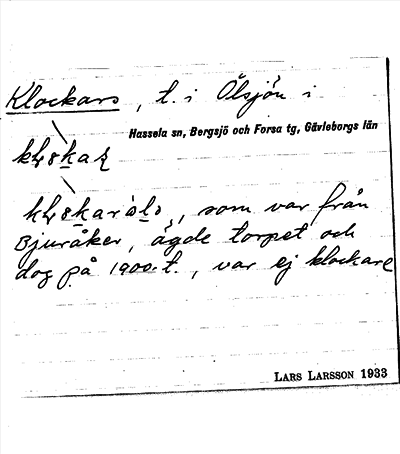 Klockars, t. i Ölsjön i
Hassela sn, Bergsjö och Forsa tg, Gävleborgs län
som var från
Bjuråker, ägde torpet och
dog på 1900-t., var ej klockare
LARS LARSSON 1933